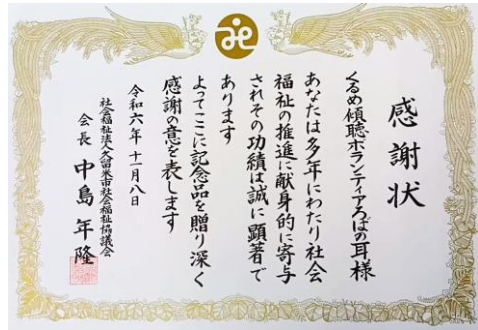 感謝状
くるめ傾聴ボランティアろばの耳様
あなたは多年にわたり社会
福祉の推進に献身的に寄与
されその功績は誠に顕著で
あります
よってここに記念品を贈り深く
感謝の意を表します
令和六年十一月八日
社会福祉法人久留米市社会福祉協議会
会長 中島年隆